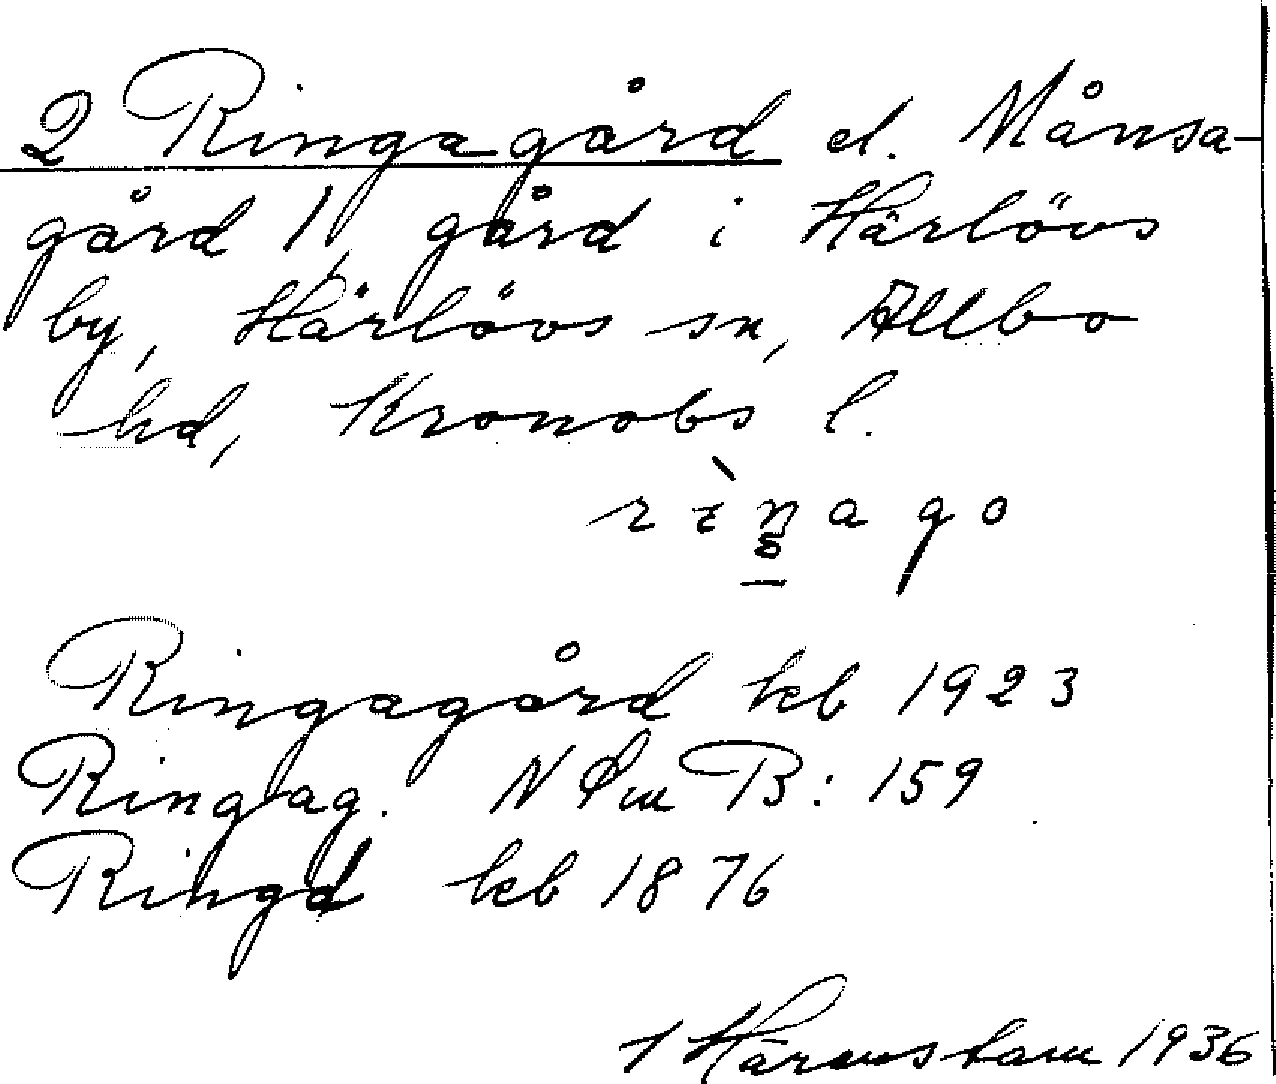 2 Ringagård el. Månsa-
gård 1, gård i Härlövs
by, Härlövs sn, Allbo
hd, Kronobs l.
Ringagård kb 1923
Ringag. N Sm B: 159
Ringd kb 1876
1936